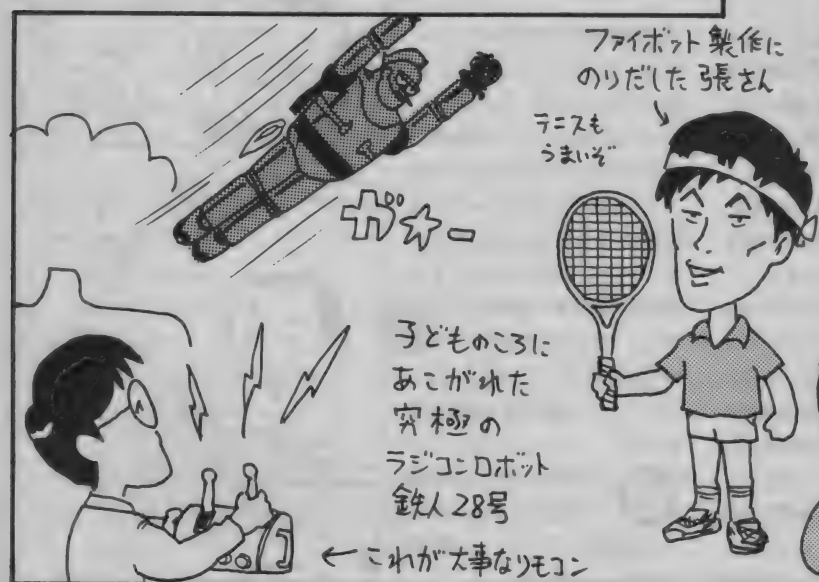 ファイボット製作に
のりだした張さん
テニスも
うまいぞ
ガオー
子どものころに
あこがれた
究極の
ラジコンロボット
鉄人28号
←これが大事なリモコン